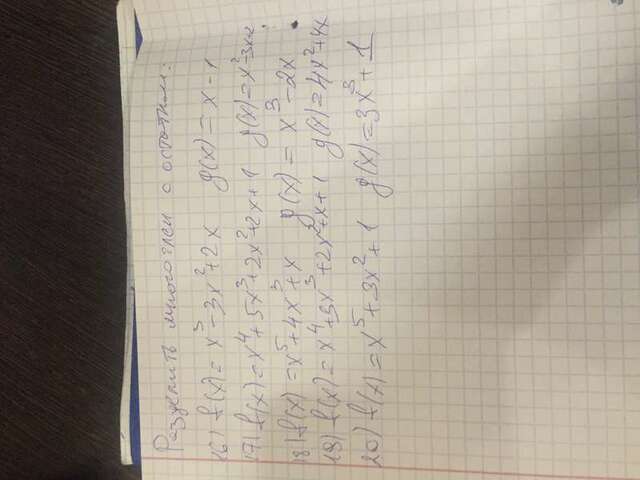 Разделить многочлен с остатком:
16) f(x) = x³ - 3x² + 2x g(x) = x - 1
17) f(x) = x⁴ + 5x³ + 2x² + 2x + 1 g(x) = x² - 3x - 2
18) f(x) = x⁵ + 4x³ + x g(x) = x³ - 2x
19) f(x) = x⁴ + 3x³ + 2x² + x + 1 g(x) = 4x² + 4x
20) f(x) = x⁵ + 3x² + 1 g(x) = 3x³ + 1